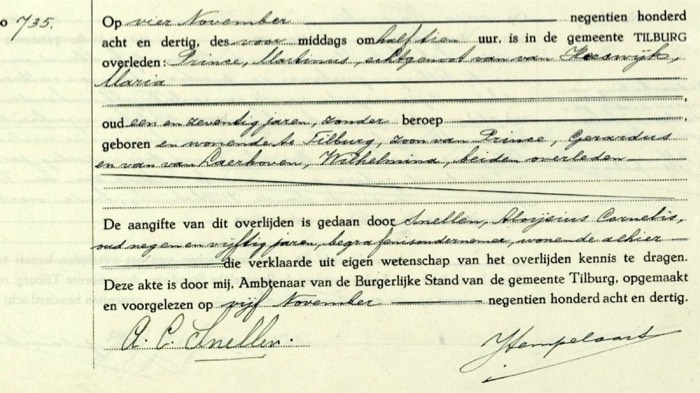 o 735.
Op vier November negentien honderd
acht en dertig, des voor middags om half tien uur, is in de gemeente TILBURG
overleden: Prince, Martinus, echtgenoot van van Heeswijk,
Maria
oud een en zeventig jaren, zonder beroep
geboren en wonende te Tilburg, zoon van Prince, Gerardus
en van van Laerhoven, Wilhelmina, beiden overleden
De aangifte van dit overlijden is gedaan door Snellen, Aloijsius Cornelis,
oud negen en vijftig jaren, begrafenisondernemer, wonende alhier
die verklaarde uit eigen wetenschap van het overlijden kennis te dragen.
Deze akte is door mij, Ambtenaar van de Burgerlijke Stand van de gemeente Tilburg, opgemaakt
en voorgelezen op vijf November negentien honderd acht en dertig.
A. C. Snellen.